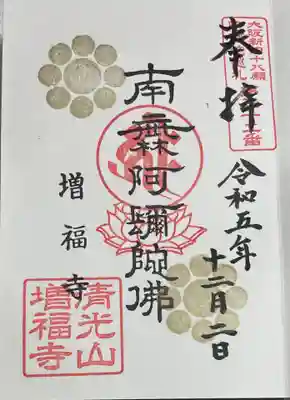 大阪新四十八願
奉拝
令和五年
十二月二日
南無阿彌陀佛
増福寺
清光山
増福寺